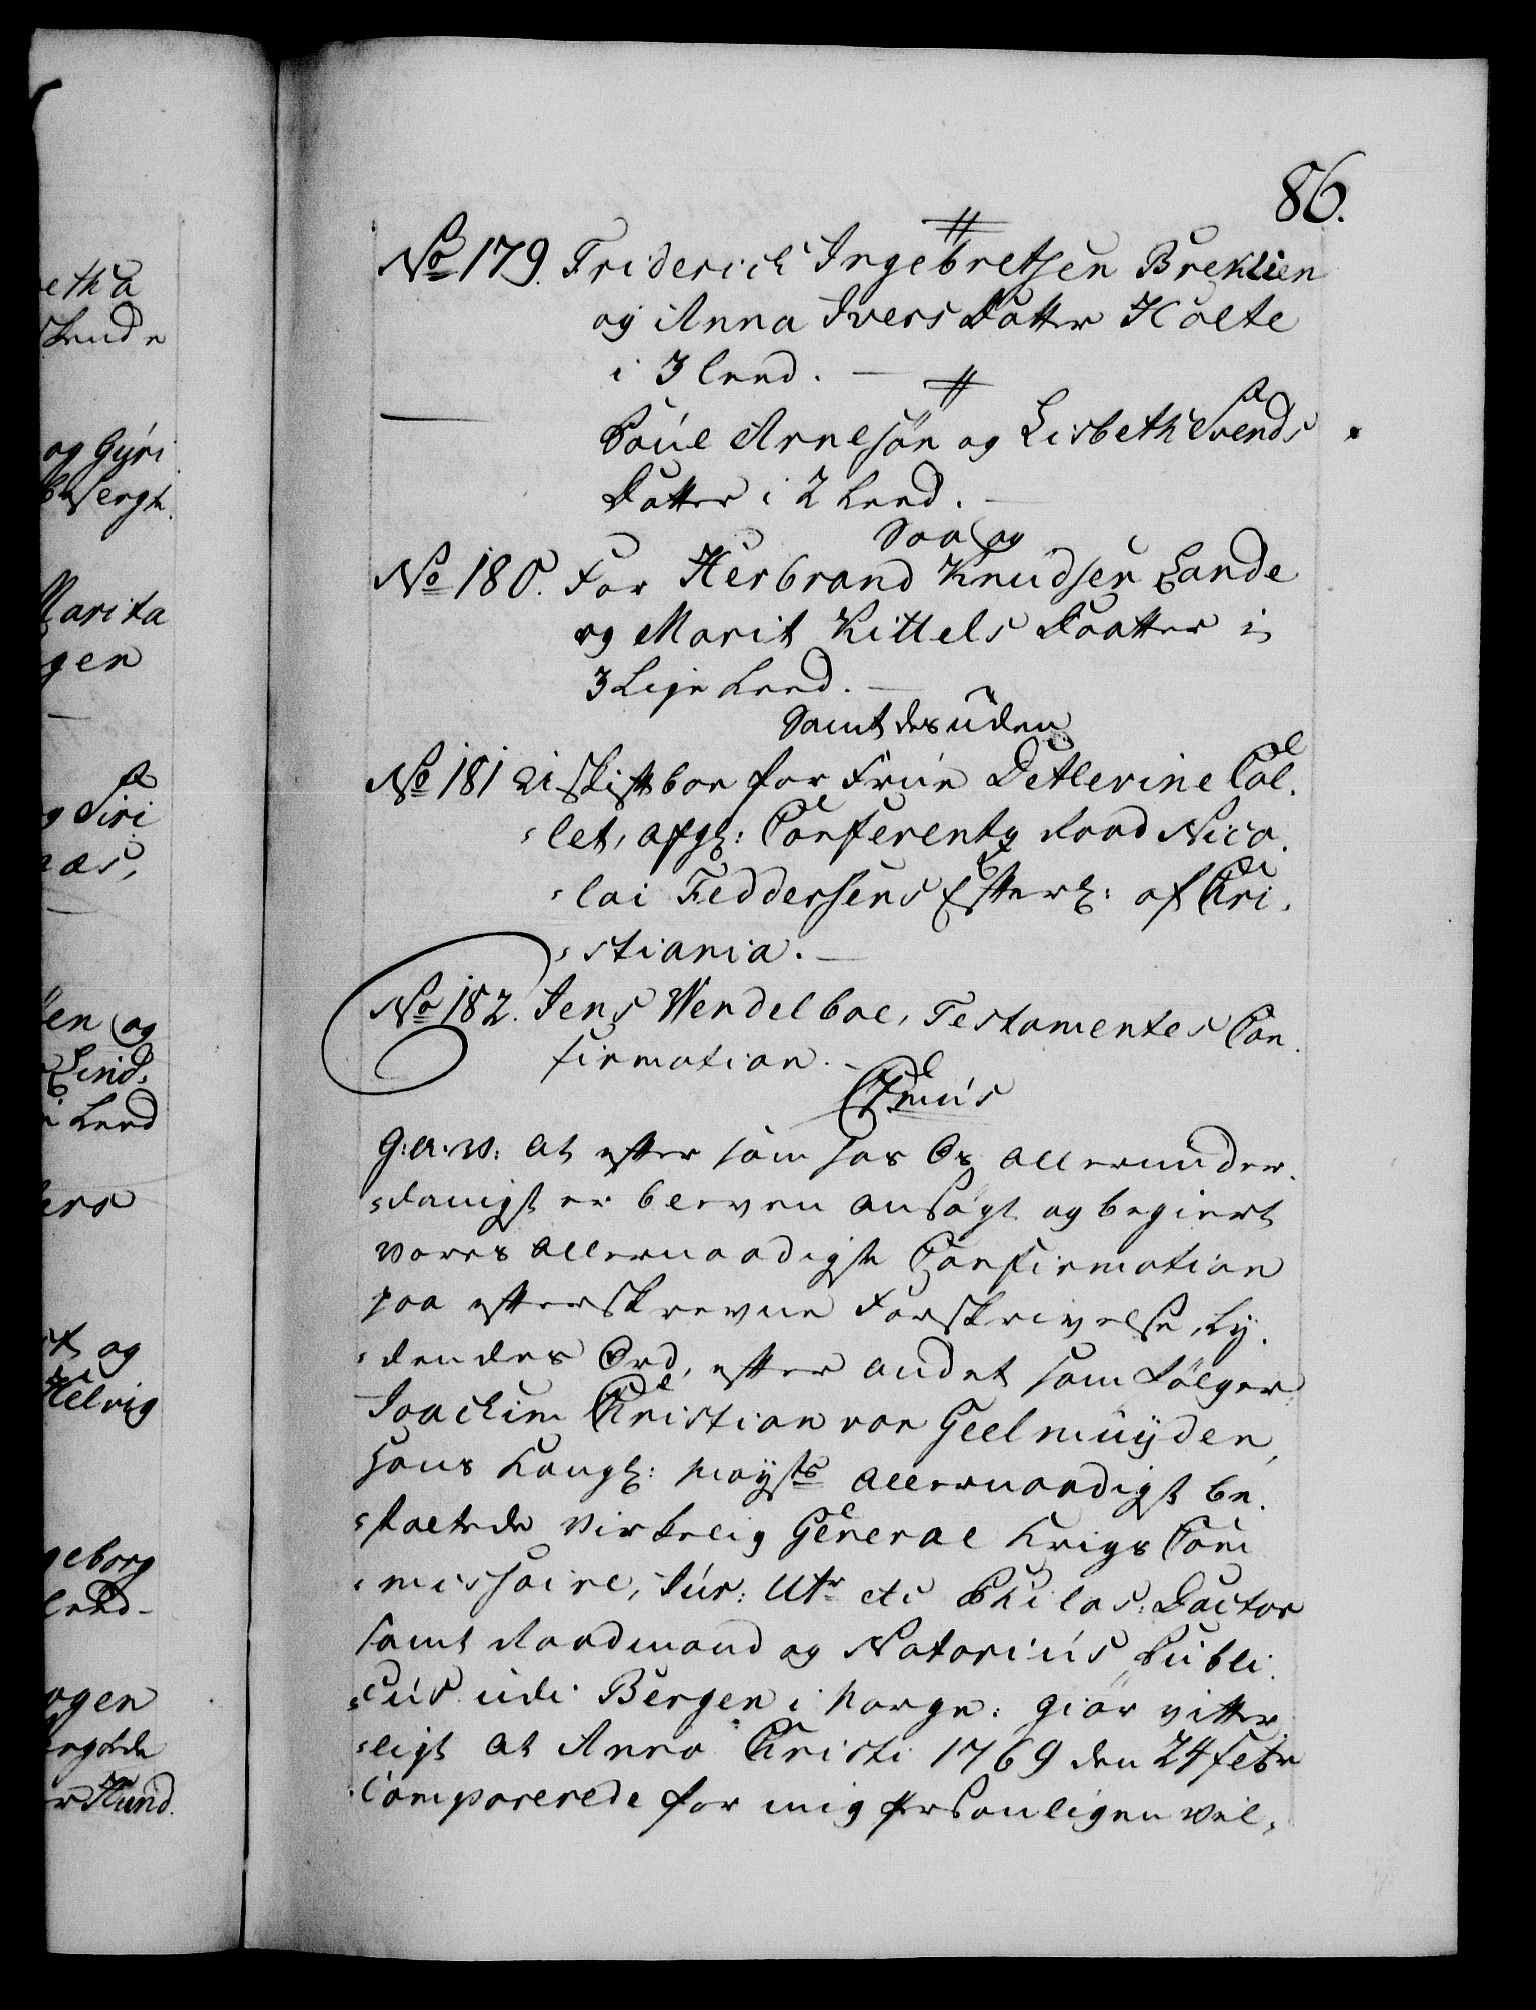 86.
No 179. Friderich Ingebretsen Breklien
og Anna Ivers Datter Holte
i 3 Leed.
Poul Arnesøn og Lisbeth Svends
Datter i 2 Leed.
Saa og
No 180. For Herbrand Knudsen Lande
og Marit Kittels Daatter i
3 Lige Leed.
Samt desuden
No 181 ui skiftbar for Frue Detlevine Col-
let, afg: Conferentz Raad Nico-
lai Feddersens Efterl: af Chri-
stiania.
No 182. Jens Wendelboe, Testamentes Con-
firmation.
C7mus
G: A: V: At efter som for Os allerunder-
danigst er bleven ansøgt og begiert
vores allernaadigste Confirmation
paa efterskrevne Forskrivelse, Ly-
dendes Ord efter andet som følger
Joachim Christian von Geelmuyden,
Hans Kongl: Mayts allernaadigst be-
staltede virkelig General Krigs Com
missaire, Jur: Utr etc Philos: Doctor
samt Raadmand og Notarius Publi-
cus udi Bergen i Norge: giør vitter-
ligt at Anno Christi 1769 den 24 Febr
Comparerede for mig personligen Vel-
etha
Leed
og Gyri
Marita
gen
Siri
næs,
en og
Lind-
i Leed
og
Helvig
geborg
Leed
ogen
Hund.